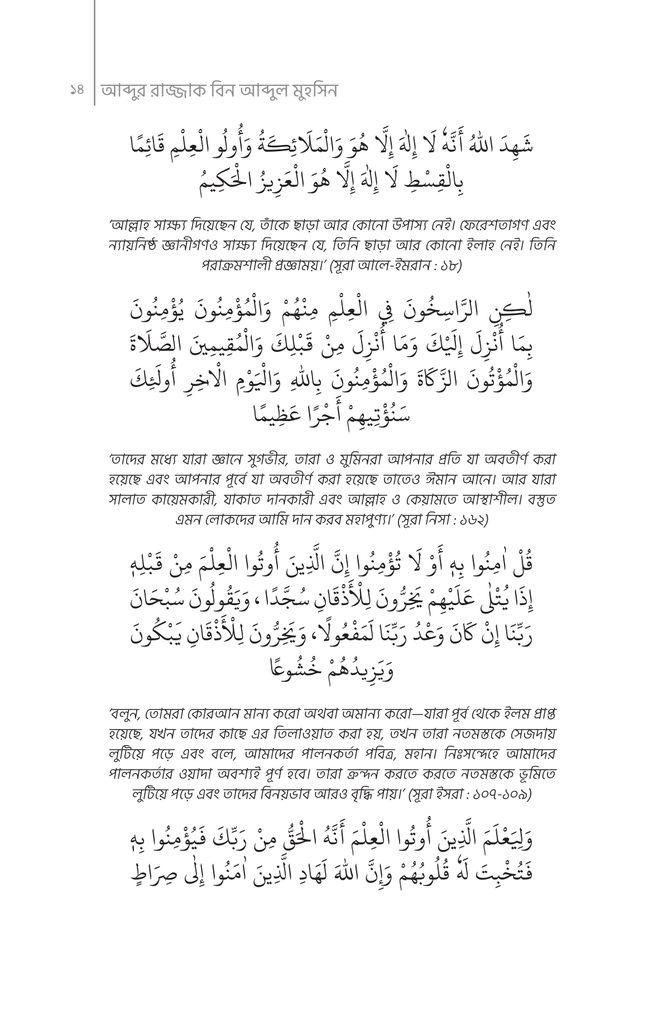 ১৪ আব্দুর রাজ্জাক বিন আব্দুল মুহসিন
شَهِدَ اللهُ أَنَّهٗ لَا إِلٰهَ إِلَّا هُوَ وَالْمَلَائِكَةُ وَأُولُو الْعِلْمِ قَائِمًا
بِالْقِسْطِ لَا إِلٰهَ إِلَّا هُوَ الْعَزِيزُ الْحَكِيمُ
‘আল্লাহ সাক্ষ্য দিয়েছেন যে, তাঁকে ছাড়া আর কোনো উপাস্য নেই। ফেরেশতাগণ এবং
ন্যায়নিষ্ঠ জ্ঞানীগণও সাক্ষ্য দিয়েছেন যে, তিনি ছাড়া আর কোনো ইলাহ নেই। তিনি
পরাক্রমশালী প্রজ্ঞাময়।’ (সূরা আলে-ইমরান : ১৮)
لٰكِنِ الرَّاسِخُونَ فِي الْعِلْمِ مِنْهُمْ وَالْمُؤْمِنُونَ يُؤْمِنُونَ
بِمَا أُنْزِلَ إِلَيْكَ وَمَا أُنْزِلَ مِنْ قَبْلِكَ وَالْمُقِيمِينَ الصَّلَاةَ
وَالْمُؤْتُونَ الزَّكَاةَ وَالْمُؤْمِنُونَ بِاللهِ وَالْيَوْمِ الْاٰخِرِ أُولَئِكَ
سَنُؤْتِيهِمْ أَجْرًا عَظِيمًا
‘তাদের মধ্যে যারা জ্ঞানে সুগভীর, তারা ও মুমিনরা আপনার প্রতি যা অবতীর্ণ করা
হয়েছে এবং আপনার পূর্বে যা অবতীর্ণ করা হয়েছে তাতেও ঈমান আনে। আর যারা
সালাত কায়েমকারী, যাকাত দানকারী এবং আল্লাহ ও কেয়ামতে আস্থাশীল। বস্তুত
এমন লোকদের আমি দান করব মহাপুণ্য।’ (সূরা নিসা : ১৬২)
قُلْ اٰمِنُوا بِهٖ أَوْ لَا تُؤْمِنُوا إِنَّ الَّذِينَ أُوتُوا الْعِلْمَ مِنْ قَبْلِهٖ
إِذَا يُتْلٰى عَلَيْهِمْ يَخِرُّونَ لِلْأَذْقَانِ سُجَّدًا ، وَيَقُولُونَ سُبْحَانَ
رَبِّنَا إِنْ كَانَ وَعْدُ رَبِّنَا لَمَفْعُولًا، وَيَخِرُّونَ لِلْأَذْقَانِ يَبْكُونَ
وَيَزِيدُهُمْ خُشُوعًا
‘বলুন, তোমরা কোরআন মান্য করো অথবা অমান্য করো—যারা পূর্ব থেকে ইলম প্রাপ্ত
হয়েছে, যখন তাদের কাছে এর তিলাওয়াত করা হয়, তখন তারা নতমস্তকে সেজদায়
লুটিয়ে পড়ে এবং বলে, আমাদের পালনকর্তা পবিত্র, মহান। নিঃসন্দেহে আমাদের
পালনকর্তার ওয়াদা অবশ্যই পূর্ণ হবে। তারা ক্রন্দন করতে করতে নতমস্তকে ভূমিতে
লুটিয়ে পড়ে এবং তাদের বিনয়ভাব আরও বৃদ্ধি পায়।’ (সূরা ইসরা : ১০৭-১০৯)
وَلِيَعْلَمَ الَّذِينَ أُوتُوا الْعِلْمَ أَنَّهُ الْحَقُّ مِنْ رَبِّكَ فَيُؤْمِنُوا بِهٖ
فَتُخْبِتَ لَهٗ قُلُوبُهُمْ وَإِنَّ اللهَ لَهَادِ الَّذِينَ اٰمَنُوا إِلٰى صِرَاطٍ